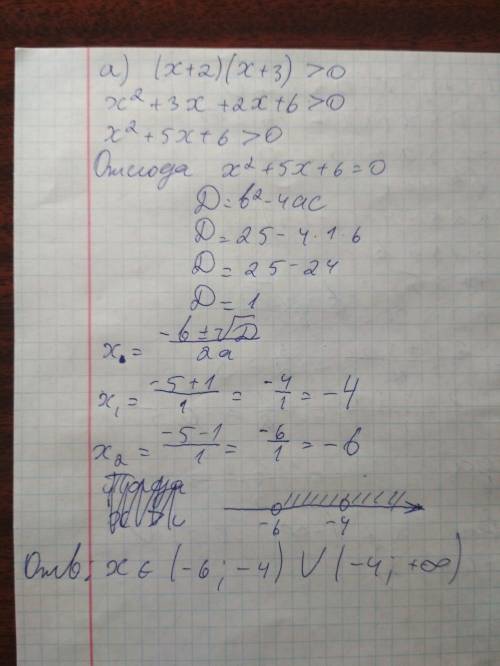 а) (x+2)(x+3) >0
x² +3x +2x+6>0
x²+5x+6>0
Отсюда x²+5x+6=0
D=b²-4ac
D=25-4·1·6
D=25-24
D=1
x = (-b±√D)/2a
x₁ = (-5+1)/1 = -4/1 = -4
x₂ = (-5-1)/1 = -6/1 = -6
-6 -4
Отв: x ∈ (-6; -4) ∪ (-4; +∞)